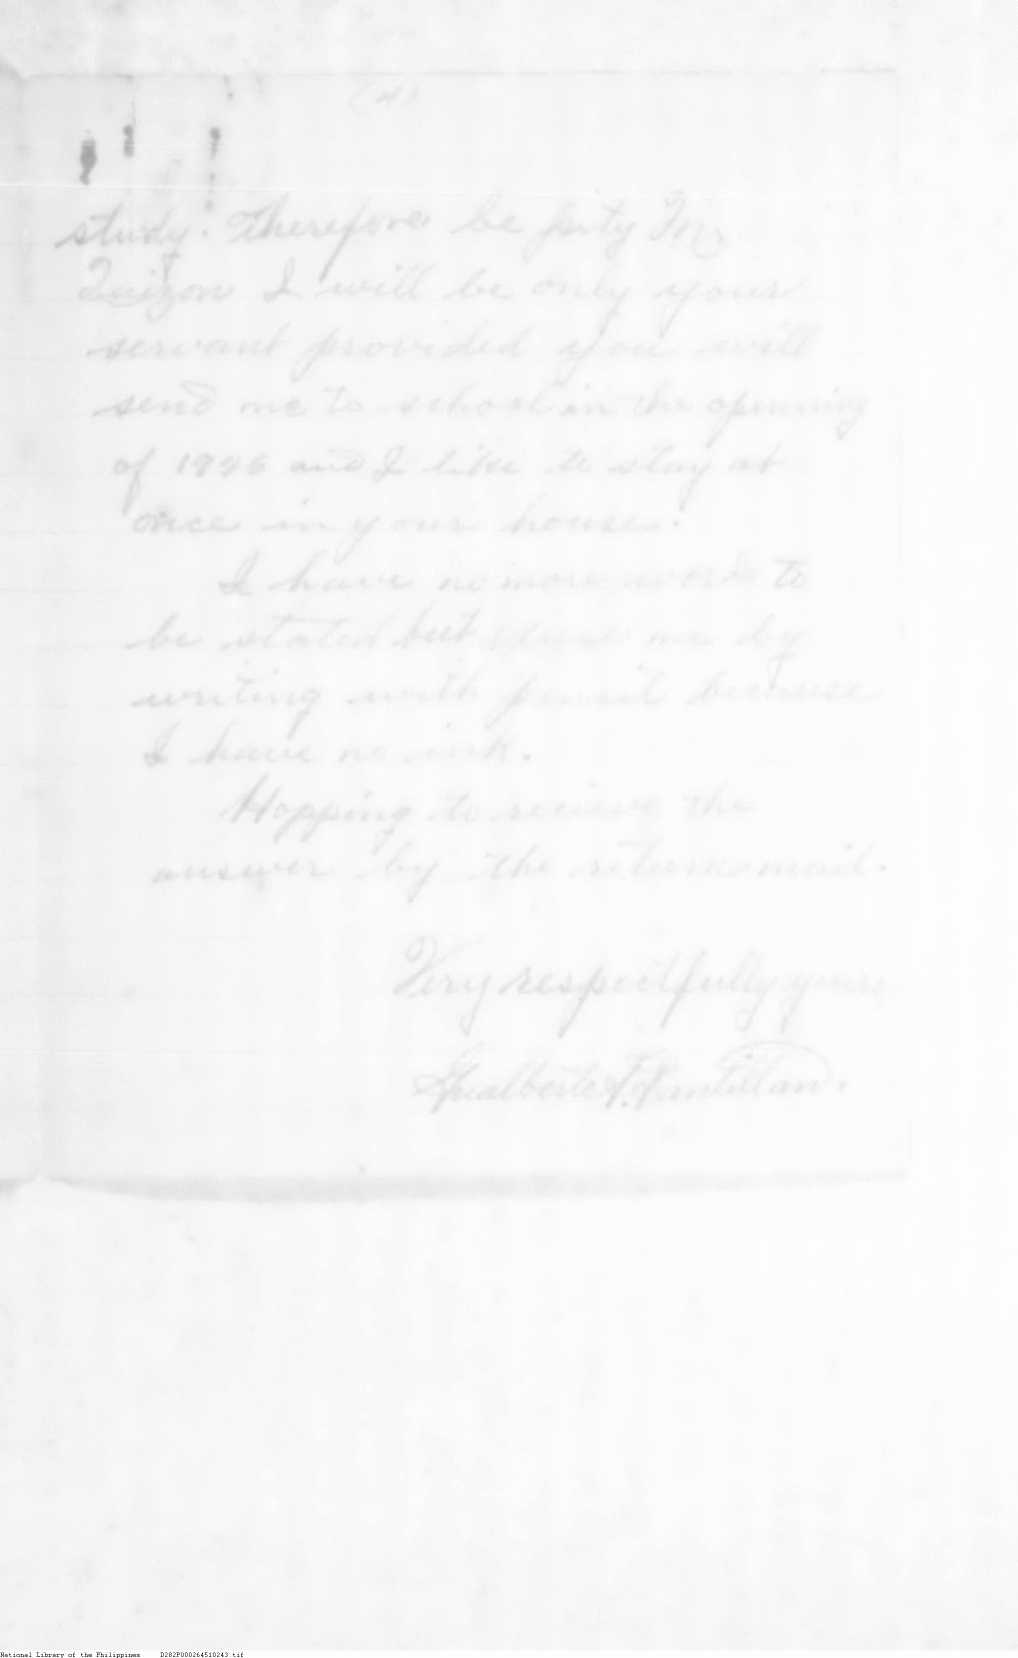 (4)
study. Therefore be pity Mr
Quizon I will be only your
servant provided you will
send me to school in the openning
of 1926 and I like to stay at
once in your house.
I have no more words to
be stated but me by
writing with pencil because
I have no ink.
Hopping to recieve the
answer by the return mail.
Very respectfully yours
Gualberto
National Library of the Philippines D282P000264510243.tif